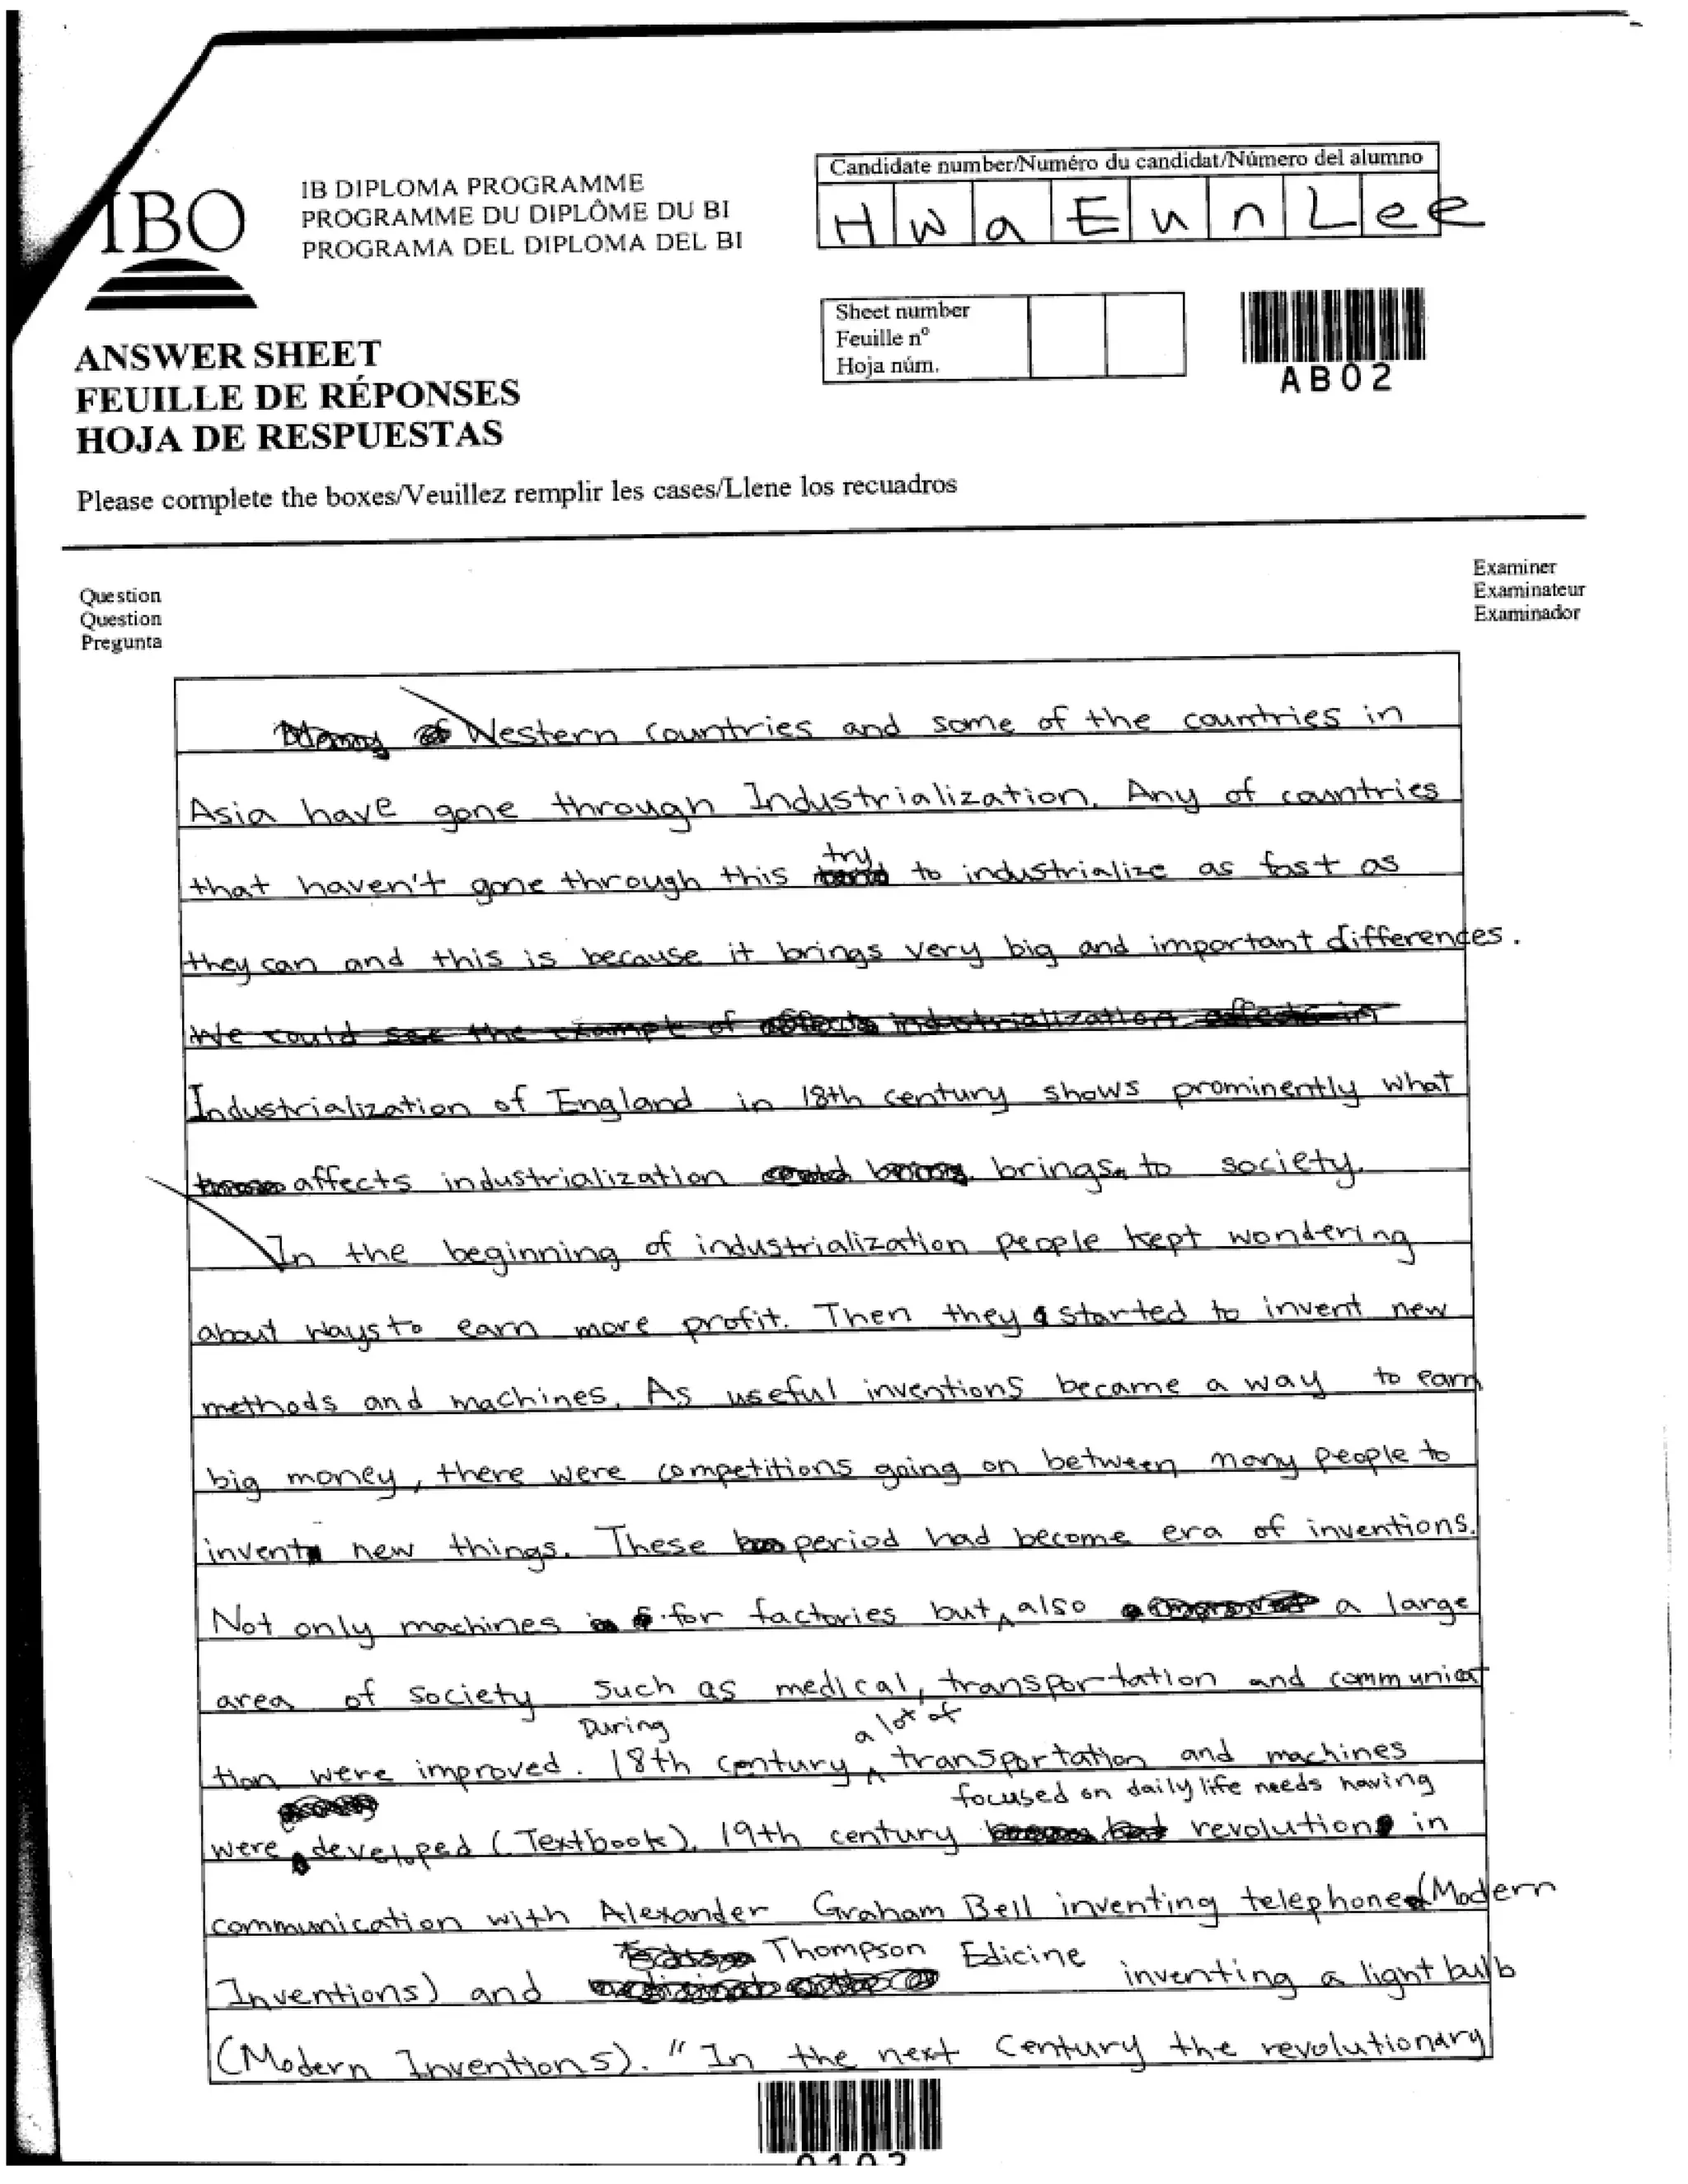 IBO
IB DIPLOMA PROGRAMME
PROGRAMME DU DIPLÔME DU BI
PROGRAMA DEL DIPLOMA DEL BI
Candidate number/Numéro du candidat/Número del alumno
HwaEunLee
Sheet number
Feuille nº
Hoja núm.
AB02
ANSWER SHEET
FEUILLE DE RÉPONSES
HOJA DE RESPUESTAS
Please complete the boxes/Veuillez remplir les cases/Llene los recuadros
Question
Question
Pregunta
Examiner
Examinateur
Examinador
Western countries and some of the countries in
Asia have gone through Industrialization. Any of countries
try
that haven't gone through this to industrialize as fast as
they can and this is because it brings very big and important differences.
We could see the example of industrialization
Industrialization of England in 18th century shows prominently what
affects industrialization brings to society.
In the beginning of industrialization people kept wondering
about ways to earn more profit. Then they started to invent new
methods and machines. As useful inventions became a way to earn
big money, there were competitions going on between many people to
invent new things. These period had become era of inventions.
Not only machines for factories but also a large
area of society such as medical, transportation and communicat
During a lot of
tion were improved. 18th century transportation and machines
focused on daily life needs having
were developed (Textbook). 19th century revolution in
communication with Alexander Graham Bell inventing telephone (Modern
Thompson Edicine
Inventions) and inventing a light bulb
(Modern Inventions). "In the next century the revolutionary